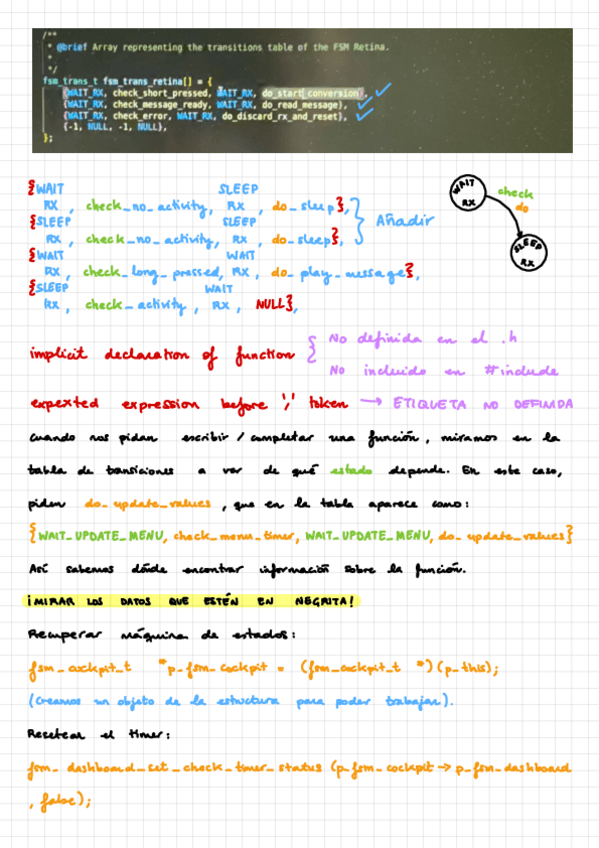 /**
* @brief Array representing the transitions table of the FSM Retina.
*
*/
fsm_trans_t fsm_trans_retina[] = {
{WAIT_RX, check_short_pressed, WAIT_RX, do_start_conversion},
{WAIT_RX, check_message_ready, WAIT_RX, do_read_message},
{WAIT_RX, check_error, WAIT_RX, do_discard_rx_and_reset},
{-1, NULL, -1, NULL},
};
{WAIT SLEEP
RX , check_no_activity, RX , do_sleep},
{SLEEP SLEEP
RX , check_no_activity, RX , do_sleep},
Añadir
{WAIT WAIT
RX , check_long_pressed, RX , do_play_message},
{SLEEP WAIT
RX , check_activity , RX , NULL},
WAIT
RX
check
do
SLEEP
RX
implicit declaration of function { No definida en el .h
No incluido en #include
expexted expression before ',' token → ETIQUETA NO DEFINIDA
Cuando nos pidan escribir / completar una función, miramos en la
tabla de transiciones a ver de qué estado depende. En este caso,
piden do_update_values, que en la tabla aparece como:
{WAIT_UPDATE_MENU, check_menu_timer, WAIT_UPDATE_MENU, do_update_values}
Así sabemos dónde encontrar información sobre la función.
¡MIRAR LOS DATOS QUE ESTÉN EN NEGRITA!
Recuperar máquina de estados:
fsm_cockpit_t *p_fsm_cockpit = (fsm_cockpit_t *)(p_this);
(Creamos un objeto de la estructura para poder trabajar).
Resetear el timer:
fsm_dashboard_set_check_timer_status (p_fsm_cockpit → p_fsm_dashboard
, false);